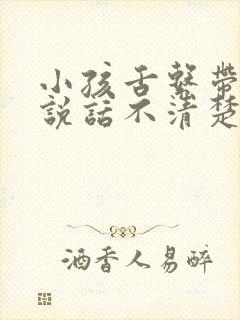 小孩舌繫帶
說話不清楚
酒香人易醉